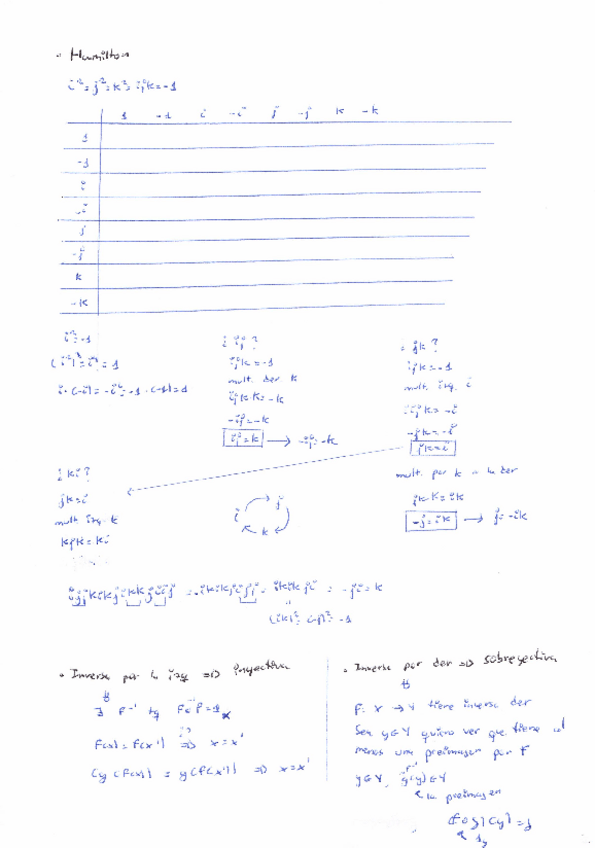 • Hamilton
i² = j² = k² = ijk = -1
1 -1 i -i j -j k -k
1
-1
i
-i
j
-j
k
-k
i² = -1
i·(-i) = -i² = -1·(-1) = 1
¿ij?
ijk = -1
mult. der k
ijkk = -k
-ij = -k
ij = k → -ij = -k
¿jk?
ijk = -1
mult. izq. i
iijk = -i
-jk = -i
jk = i
mult. por k a la der
-j = ik → j = -ik
¿ki?
jk = i
mult izq. k
kjk = ki
i j k
= -ji = k
(ik)² = (-j)² = -1
• Inversa por la izq ⇒ Inyectiva
∃ f⁻¹ tq f∘f⁻¹ = 1x
f(x) = f(x') ⇒ x = x'
(g(f(x)) = g(f(x')) ⇒ x = x'
• Inversa por der ⇒ sobreyectiva
f: X → Y tiene inversa der
Sea y∈Y quiero ver que tiene al
menos una preimagen por f
y∈Y, g(y)∈Y
la preimagen
(f∘g)(y) = 1